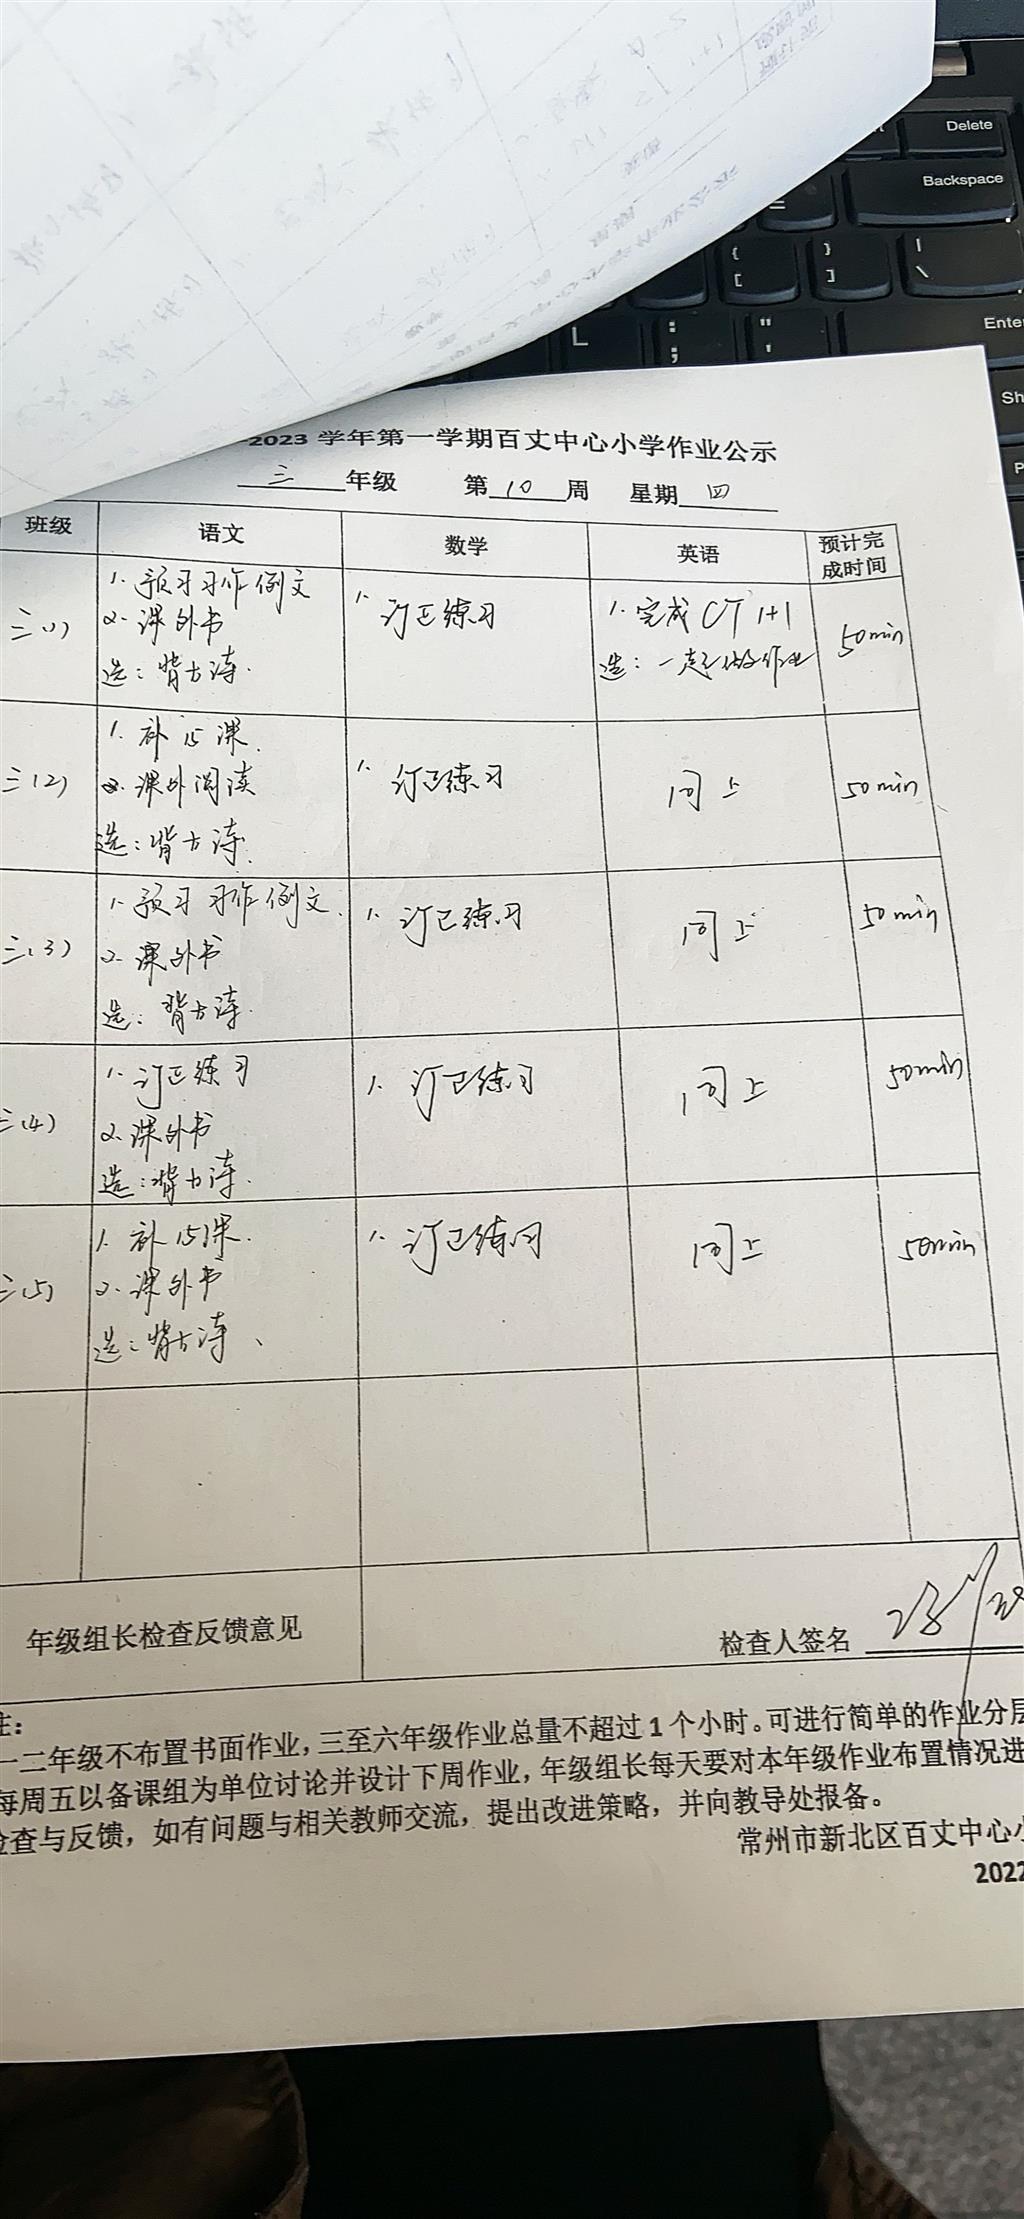 Delete
Backspace
{
[
}
]
|
\
L
:
;
"
'
Enter
Sh
P
-2023 学年第一学期百丈中心小学作业公示
三 年级 第 10 周 星期 四
班级 语文 数学 英语 预计完成时间
三(1)
1. 预习习作例文
2. 课外书
选：背古诗.
1. 订正练习
1. 完成 CT 1+1
选：一起做作业
50min
三(2)
1. 补 15 课.
2. 课外阅读
选：背古诗.
1. 订正练习
同上
50min
三(3)
1. 预习 习作例文.
2. 课外书
选：背古诗.
1. 订正练习
同上
50min
三(4)
1. 订正练习
2. 课外书
选：背古诗.
1. 订正练习
同上
50min
三(5)
1. 补 15课.
2. 课外书
选：背古诗、
1. 订正练习
同上
50min
年级组长检查反馈意见
检查人签名
注：
一二年级不布置书面作业，三至六年级作业总量不超过 1 个小时。可进行简单的作业分层
每周五以备课组为单位讨论并设计下周作业，年级组长每天要对本年级作业布置情况进
检查与反馈，如有问题与相关教师交流，提出改进策略，并向教导处报备。
常州市新北区百丈中心小
2022